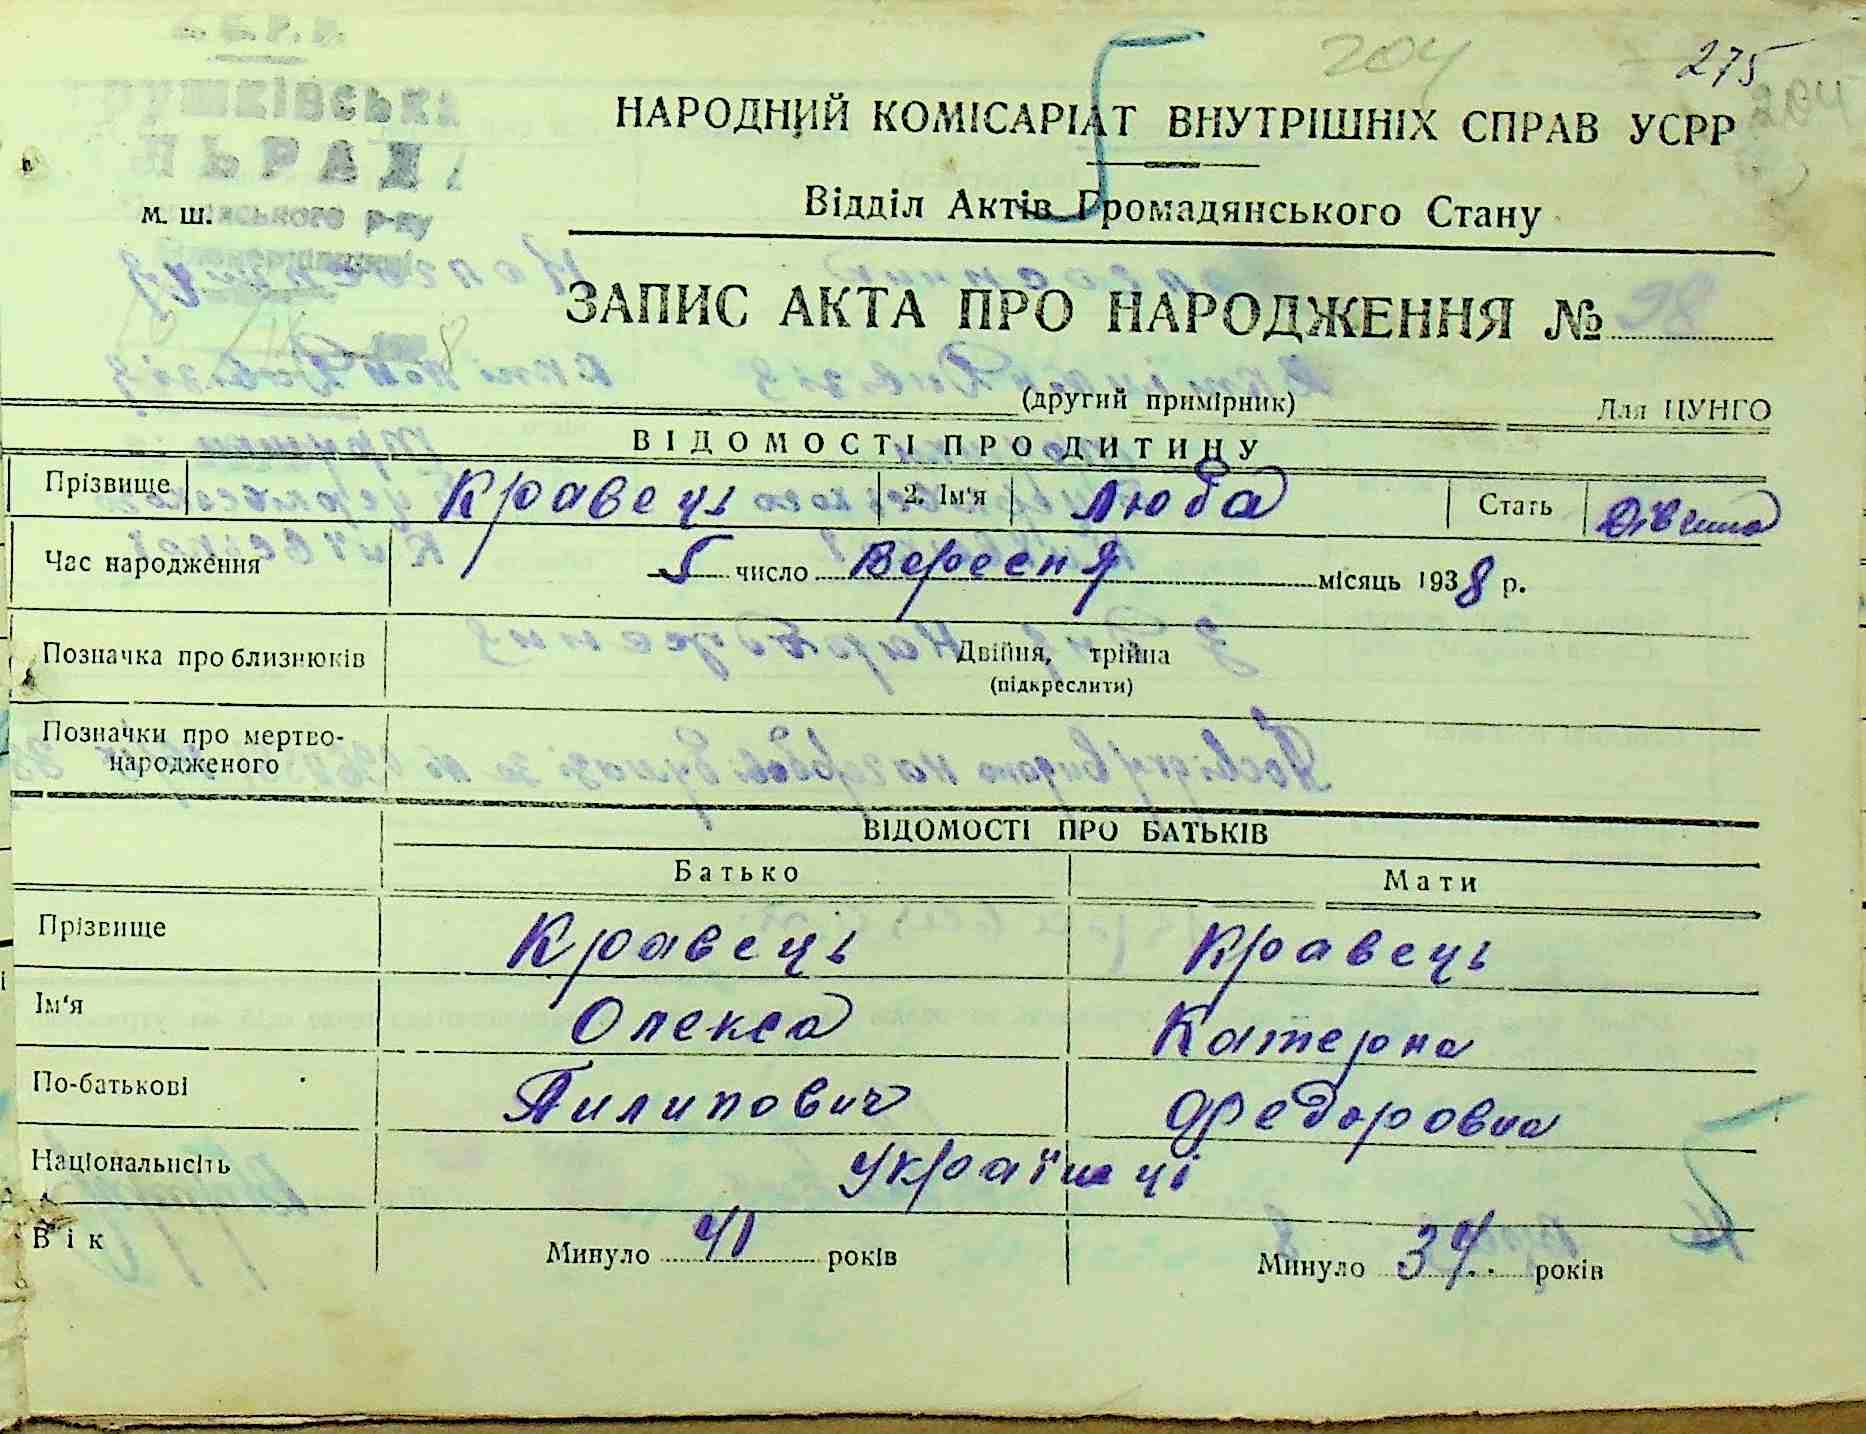 204
275
НАРОДНИЙ КОМІСАРІАТ ВНУТРІШНІХ СПРАВ УСРР
Відділ Актів Громадянського Стану
м. ш.
р-ну
ЗАПИС АКТА ПРО НАРОДЖЕННЯ № 98
(другий примірник) Для ЦУНГО
ВІДОМОСТІ ПРО ДИТИНУ
Прізвище Кравець 2. Ім'я Люба Стать Дівчина
Час народження 5 число Вересня місяць 1938 р.
Позначка про близнюків Двійня, трійня
(підкреслити)
Позначки про мертво-
народженого
ВІДОМОСТІ ПРО БАТЬКІВ
Батько Мати
Прізвище Кравець Кравець
Ім'я Олекса Катерна
По-батькові Пилипович Федоровна
Національність Українці
Вік Минуло 41 років Минуло 34 років